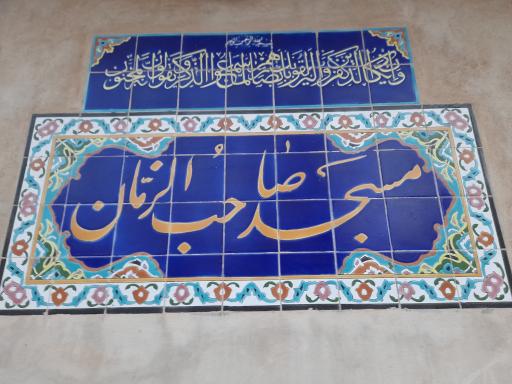 بسم الله الرحمن الرحیم
وَ إِن یَکَادُ الَّذینَ کَفَرُوا لَیُزْلِقُونَکَ بِأَبْصَارِهِمْ لَمَّا سَمِعُوا الذِّکْرَ وَ یَقُولُونَ إِنَّهُ لَمَجْنُونٌ
مسجد صاحب الزمان